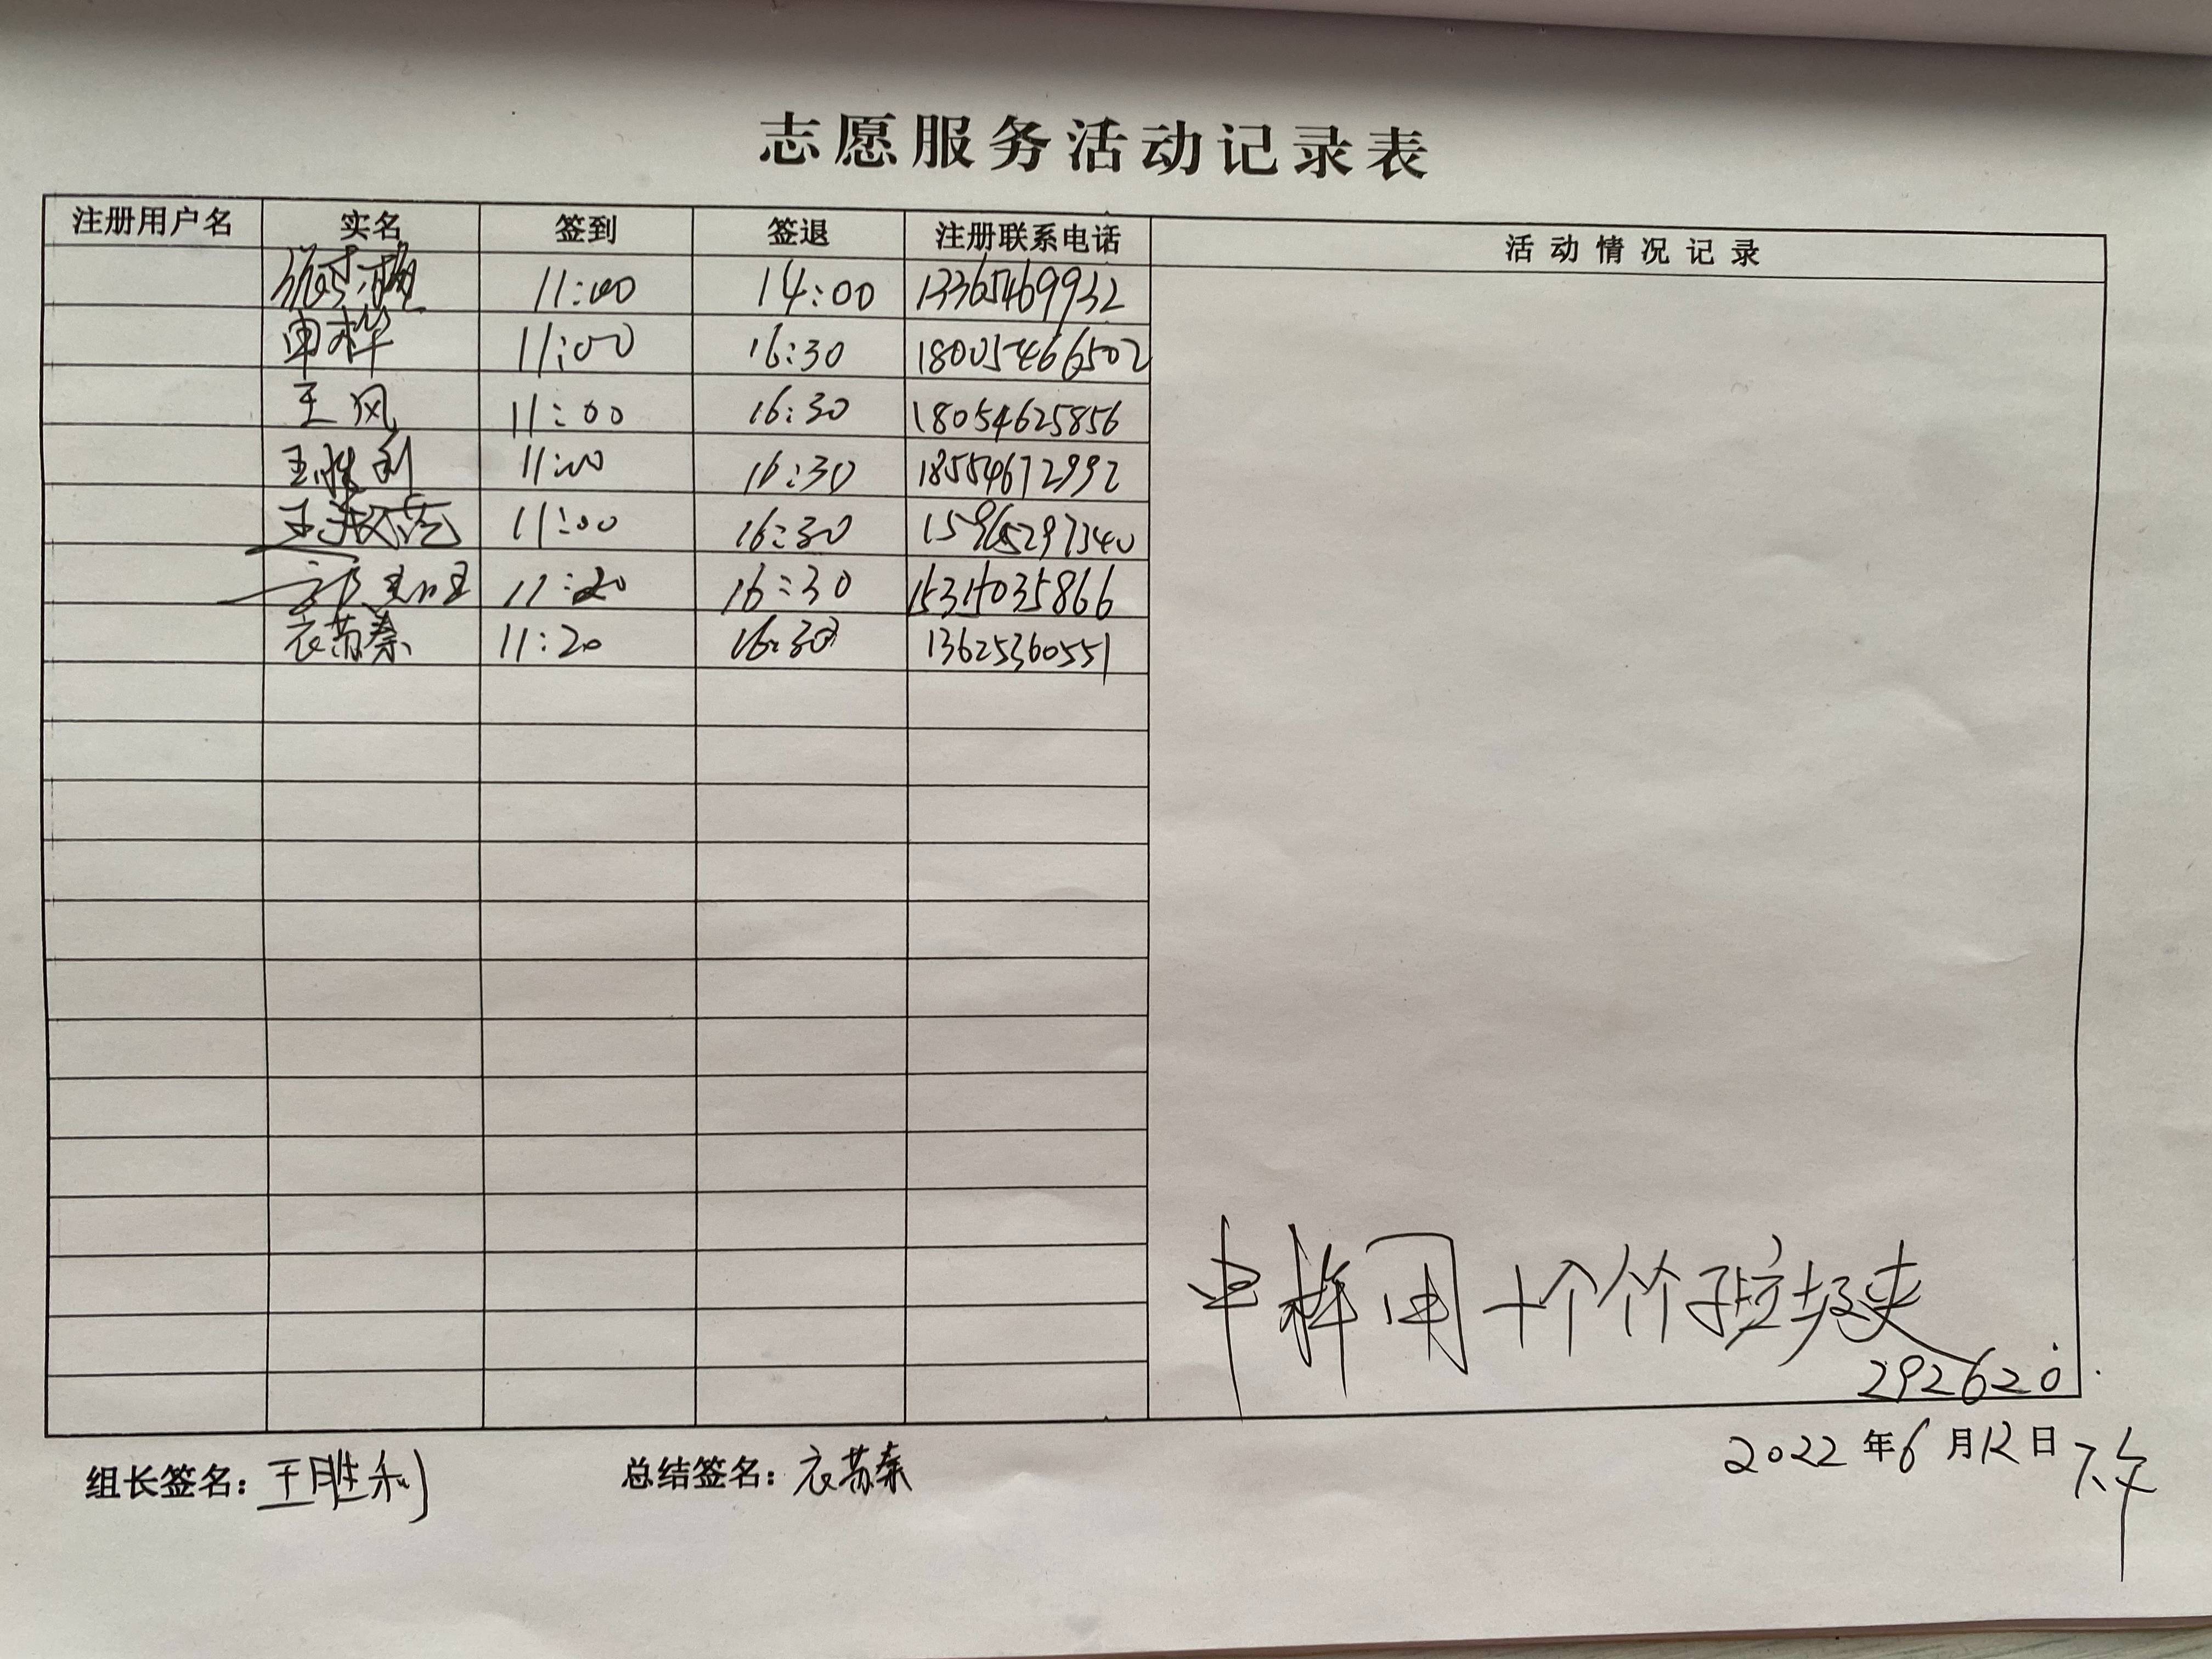 志愿服务活动记录表
注册用户名 实名 签到 签退 注册联系电话 活动情况记录
11:00 14:00 13365469932
申桦 11:00 16:30 18005466502
王风 11:00 16:30 18054625856
王胜利 11:00 16:30 18554672992
11:00 16:30 15965297340
11:20 16:30 15314035866
衣苏秦 11:20 16:30 13625360551
申桦用十个竹子垃圾夹
292620
2022年6月12日下午
组长签名：王胜利 总结签名：衣苏秦